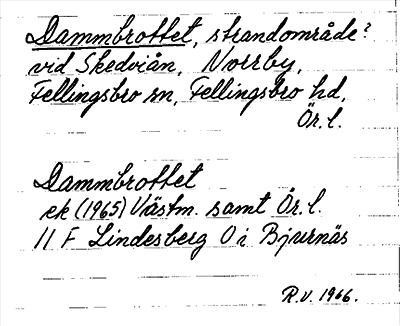 Dammbrottet, strandområde?
vid Skedviån, Norrby,
Fellingsbro sn, Fellingsbro hd,
Ör. l.
Dammbrottet
ek (1965) Västm. samt Ör. l.
11 F Lindesberg O i Bjurnäs
R.V. 1966.